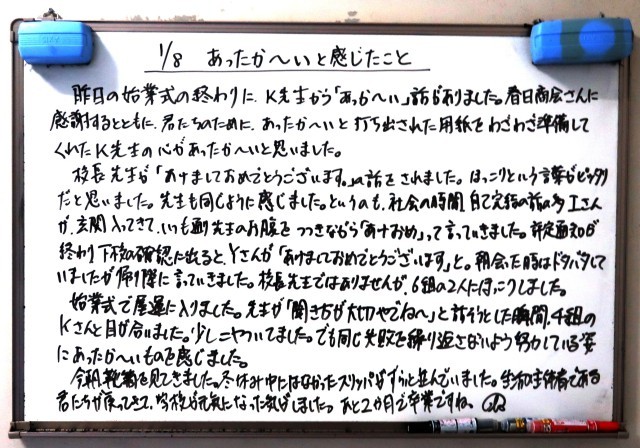 1/8 あったか〜いと感じたこと
昨日の始業式の終わりに、K先生から「あったか〜い」話がありました。春日商会さんに
感謝するとともに、君たちのために、あったか〜いと打ち出された用紙をわざわざ準備して
くれたK先生の心があったか〜いと思いました。
校長先生が「あけましておめでとうございます。」の話をされました。ほっこりという言葉がピッタリ
だと思いました。先生も同じように感じました。というのも、社会の時間、Iさん
が、玄関入ってきて、いつも通り先生のお腹をつつきながら「あけおめ」って言っていきました。
終わり下校の確認に出ると、Yさんが「あけましておめでとうございます」と。朝会った時はドタバタして
いましたが帰り際に言っていきました。校長先生ではありませんが、6組の2人にほっこりしました。
始業式で居運に入りました。先生が「聞き方が大切やでね〜」と話そうとした瞬間、4組の
Kさんと目が合いました。少しニヤついてました。でも同じ失敗を繰り返さないよう努力している姿
にあったか〜いものを感じました。
今朝、靴箱を見てきました。冬休み中にはなかったスリッパがずらっと並んでいました。生活の主体者である
君たちが戻ってきて、学校も元気になった気がしました。あと2か月で卒業ですね。